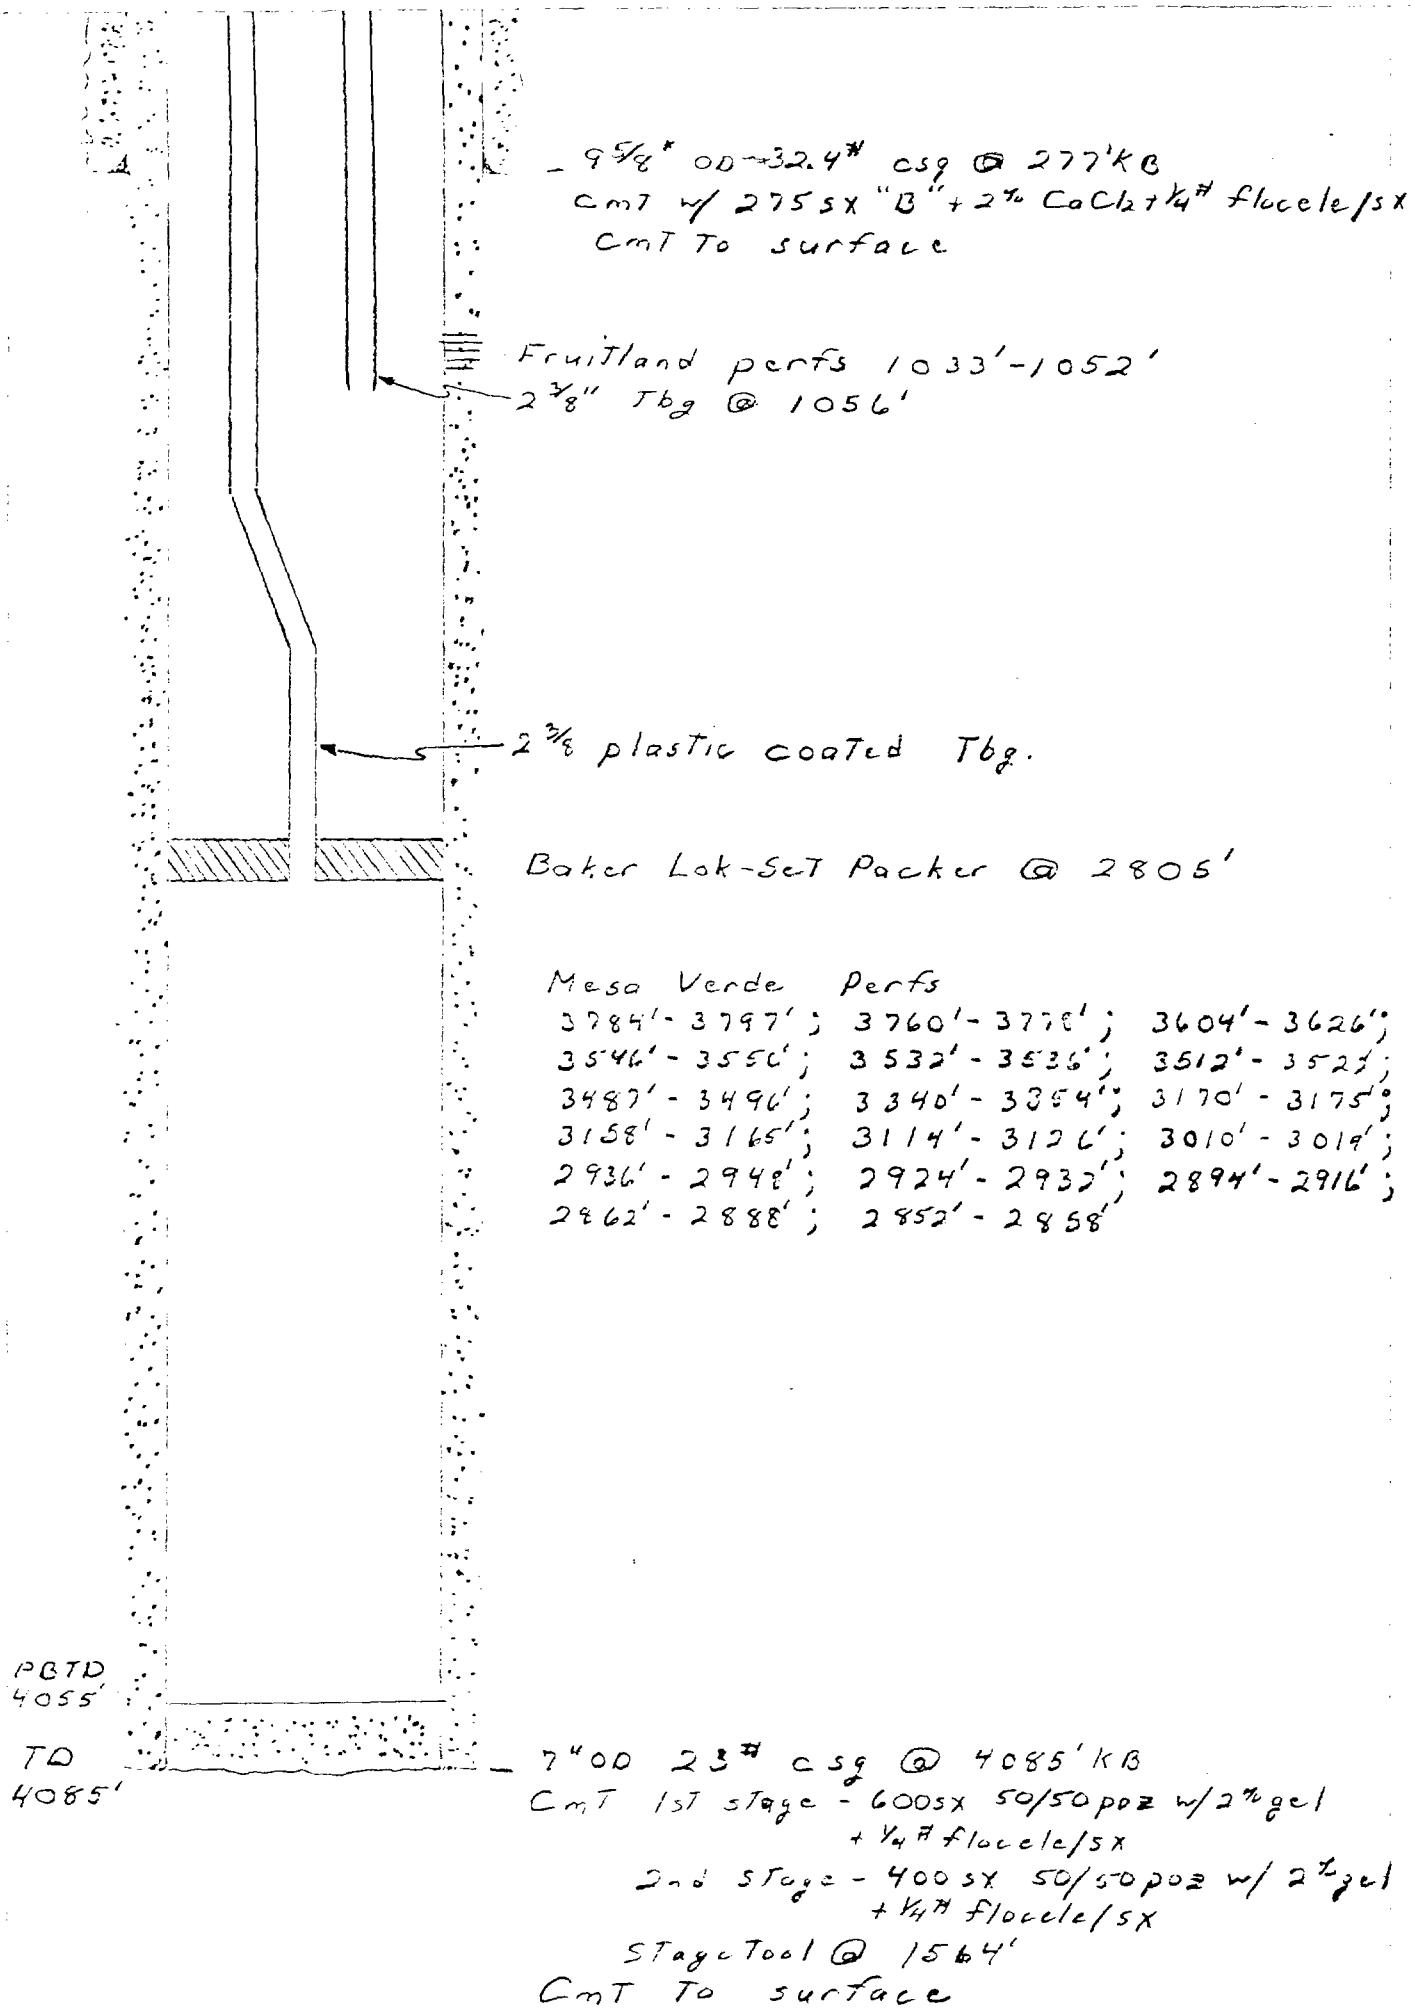 9 5/8" OD 32.4# csg @ 277'KB
CmT w/ 275sx "B" + 2% CaCl2 + 1/4# flocele/sx
CmT To surface
Fruitland perfs 1033'-1052'
2 3/8" Tbg @ 1056'
2 3/8 plastic coated Tbg.
Baker Lok-SeT Packer @ 2805'
Mesa Verde Perfs
3784'-3797'; 3760'-3778'; 3604'-3626';
3546'-3556'; 3532'-3536'; 3512'-
3487'-3496'; 3340'-3354'; 3170'-3175';
3158'-3165'; 3114'-3126'; 3010'-3019';
2936'-2948'; 2924'-2932'; 2894'-2916';
2862'-2888'; 2852'-2858'
PBTD
4055'
TD
4085'
7"OD 23# csg @ 4085'KB
CmT 1sT sTage - 600sx 50/50 poz w/2% gel
+ 1/4# flocele/sx
2nd sTage - 400sx 50/50 poz w/ 2% gel
+ 1/4# flocele/sx
STage Tool @ 1564'
CmT To surface